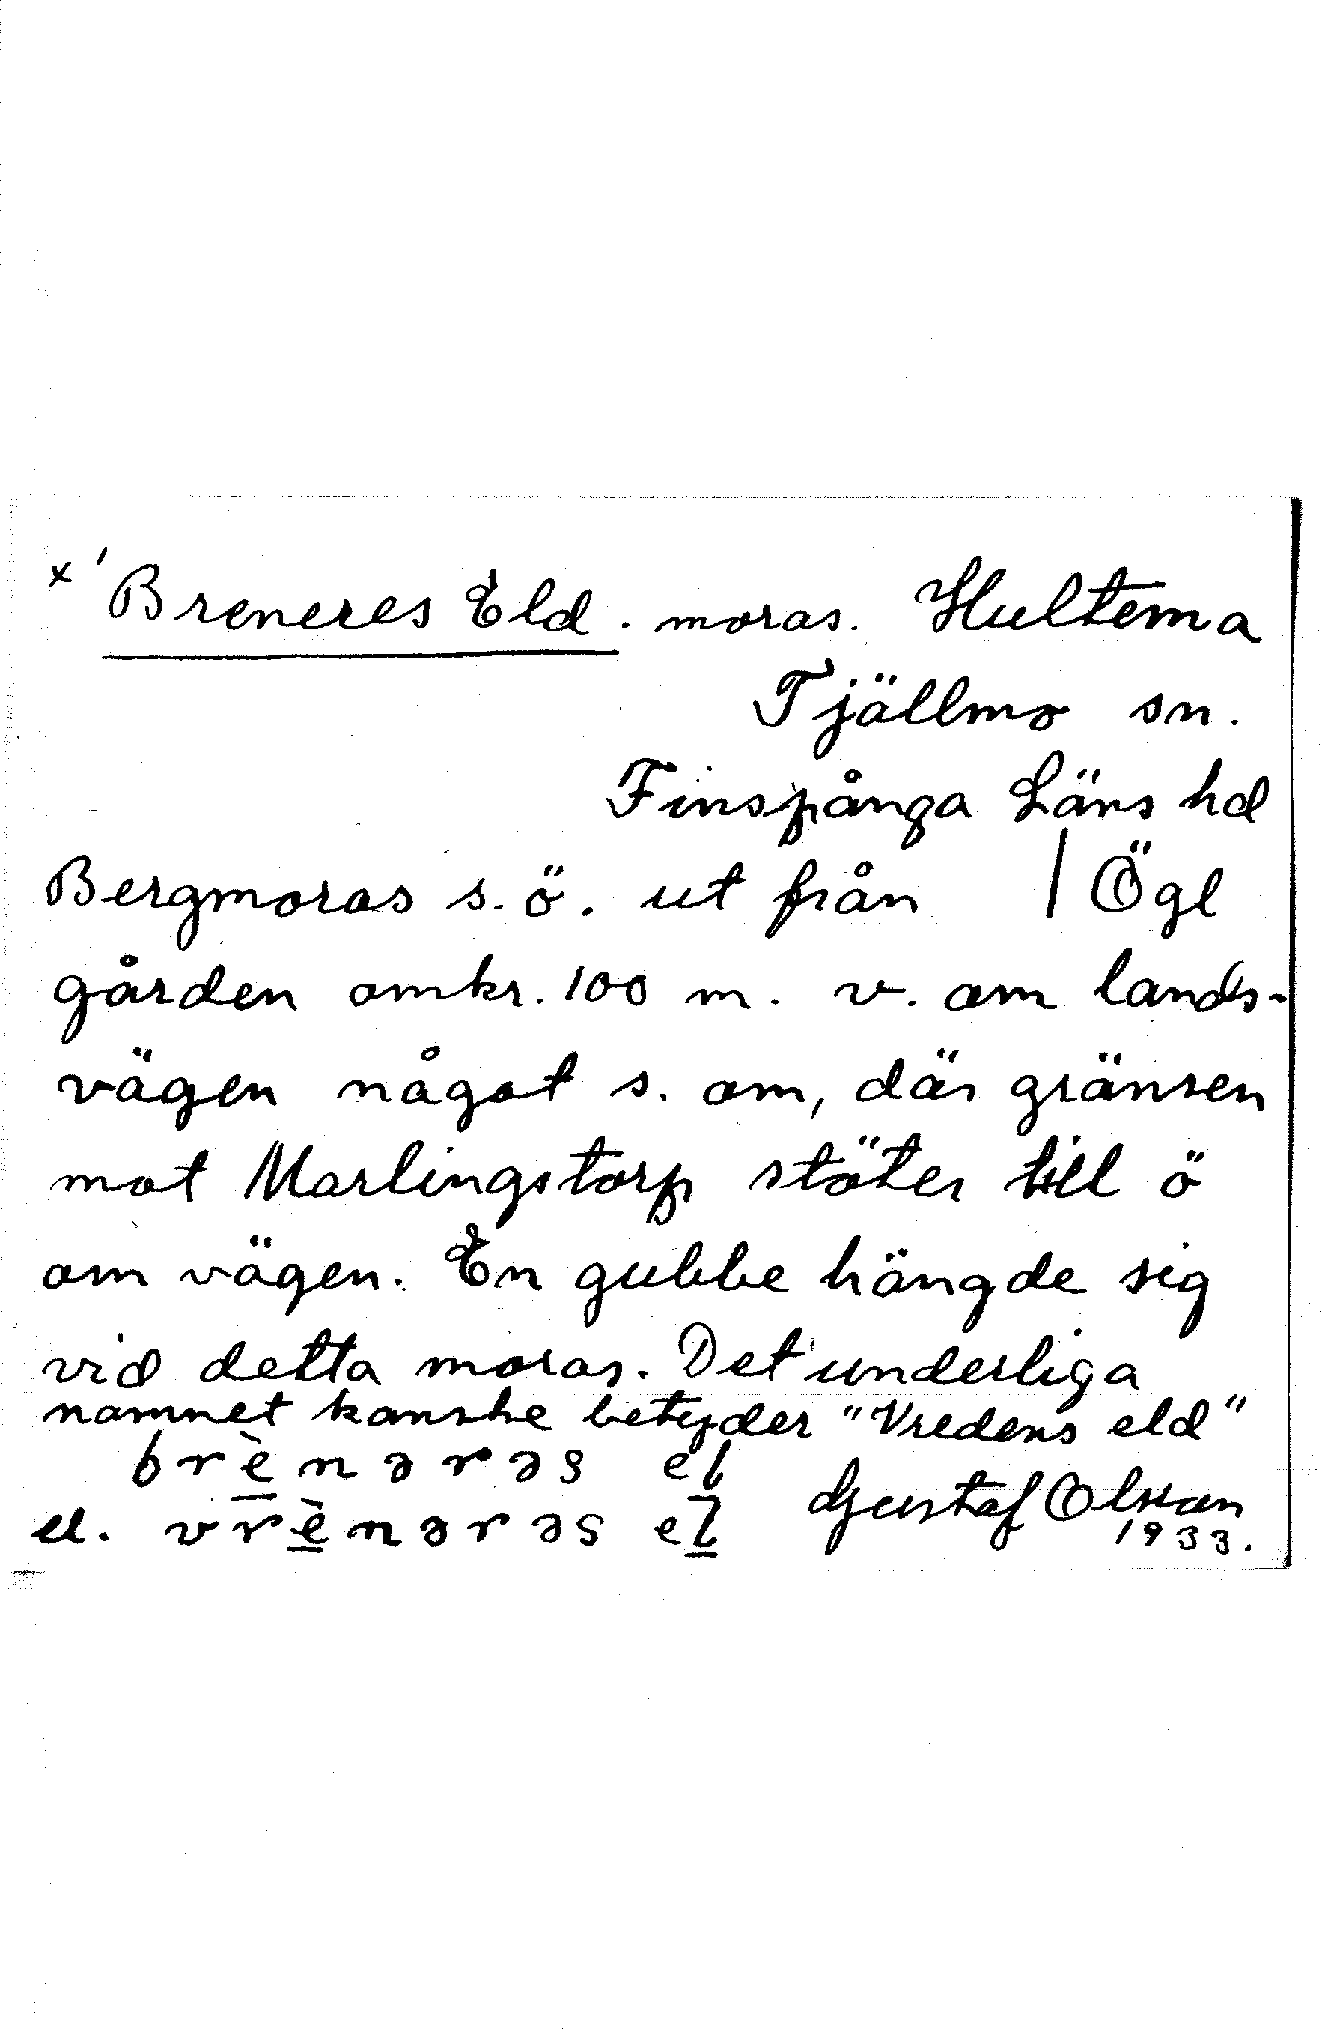 x' Breneres Eld. moras. Hultema
Tjällmo sn.
Finspånga Läns hd
Bergmoras s.ö. ut från / Ögl
gården omkr. 100 m. v. om lands-
vägen något s. om, där gränsen
mot Marlingstorp stöter till ö
om vägen. En gubbe hängde sig
vid detta moras. Det underliga
namnet kanske betyder "Vredens eld"
brènərəs el
el. vrènərəs el Gustaf Olsson
1933.